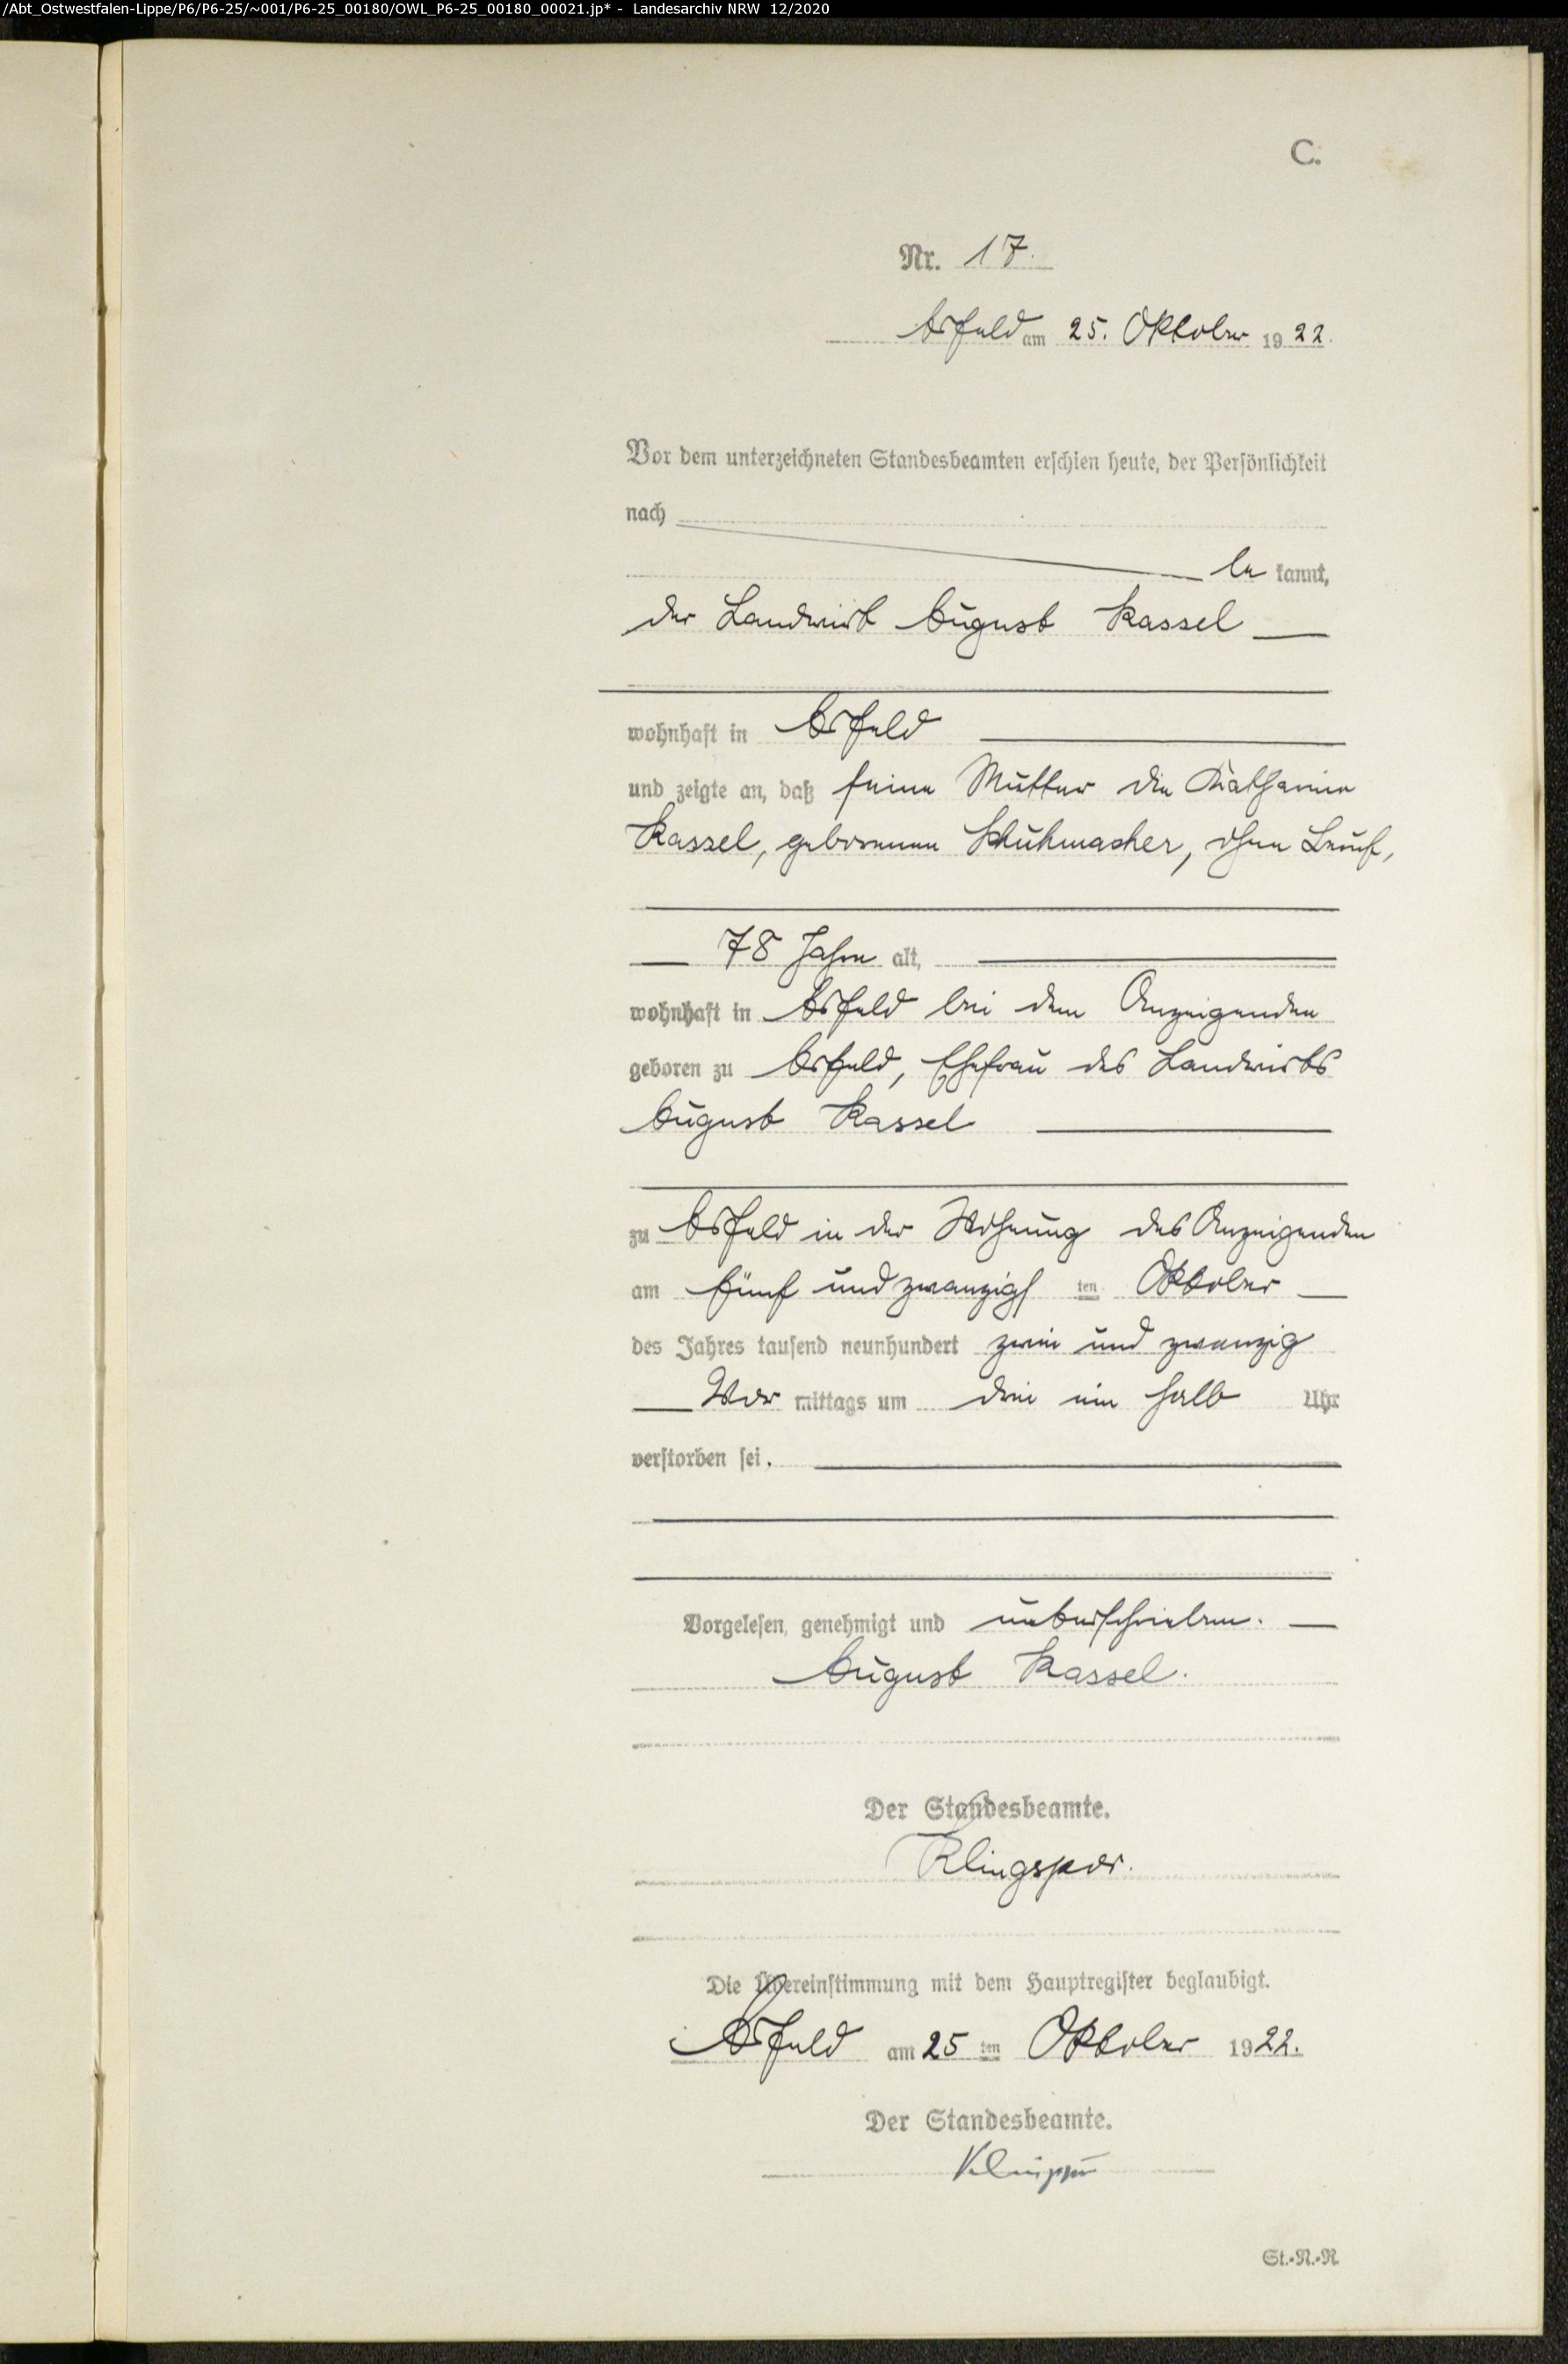 /Abt_Ostwestfalen-Lippe/P6/P6-25/~001/P6-25_00180/OWL_P6-25_00180_00021.jp* - Landesarchiv NRW 12/2020
C.
Nr. 17.
Arfeld am 25. Oktober 1922.
Vor dem unterzeichneten Standesbeamten erschien heute, der Persönlichkeit
nach
be kannt,
der Landwirt August Kassel
wohnhaft in Arfeld
und zeigte an, daß seine Mutter die Katharina
Kassel, geborenen Schuhmacher, ohne Beruf,
78 Jahre alt,
wohnhaft in Arfeld bei dem Anzeigenden
geboren zu Arfeld, Ehefrau des Landwirts
August Kassel
zu Arfeld in der Wohnung des Anzeigenden
am fünf und zwanzigs ten Oktober
des Jahres tausend neunhundert zwei und zwanzig
Vor mittags um drei ein halb Uhr
verstorben sei.
Vorgelesen, genehmigt und unterschrieben.
August Kassel.
Der Standesbeamte.
Klingspor.
Die Übereinstimmung mit dem Hauptregister beglaubigt.
Arfeld am 25 ten Oktober 1922.
Der Standesbeamte.
St.-N.-R.